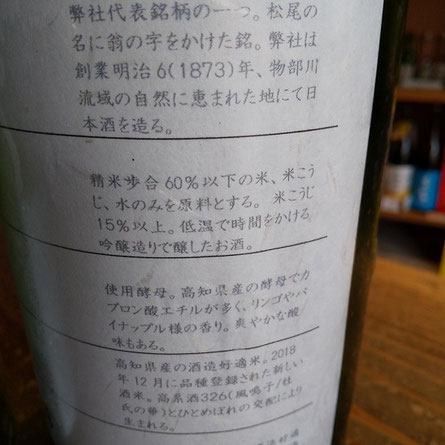 弊社代表銘柄の一つ。松尾の
名に翁の字をかけた銘。弊社は
創業明治6(1873)年、物部川
流域の自然に恵まれた地にて日
本酒を造る。
精米歩合60%以下の米、米こう
じ、水のみを原料とする。米こうじ
15%以上。低温で時間をかける
吟醸造りで醸したお酒。
使用酵母。高知県産の酵母でカ
プロン酸エチルが多く、リンゴやパ
イナップル様の香り。爽やかな酸
味もある。
高知県産の酒造好適米。2018
年12月に品種登録された新しい
酒米。高系酒326(風鳴子/杜
氏の華)とひとめぼれの交配により
生まれる。